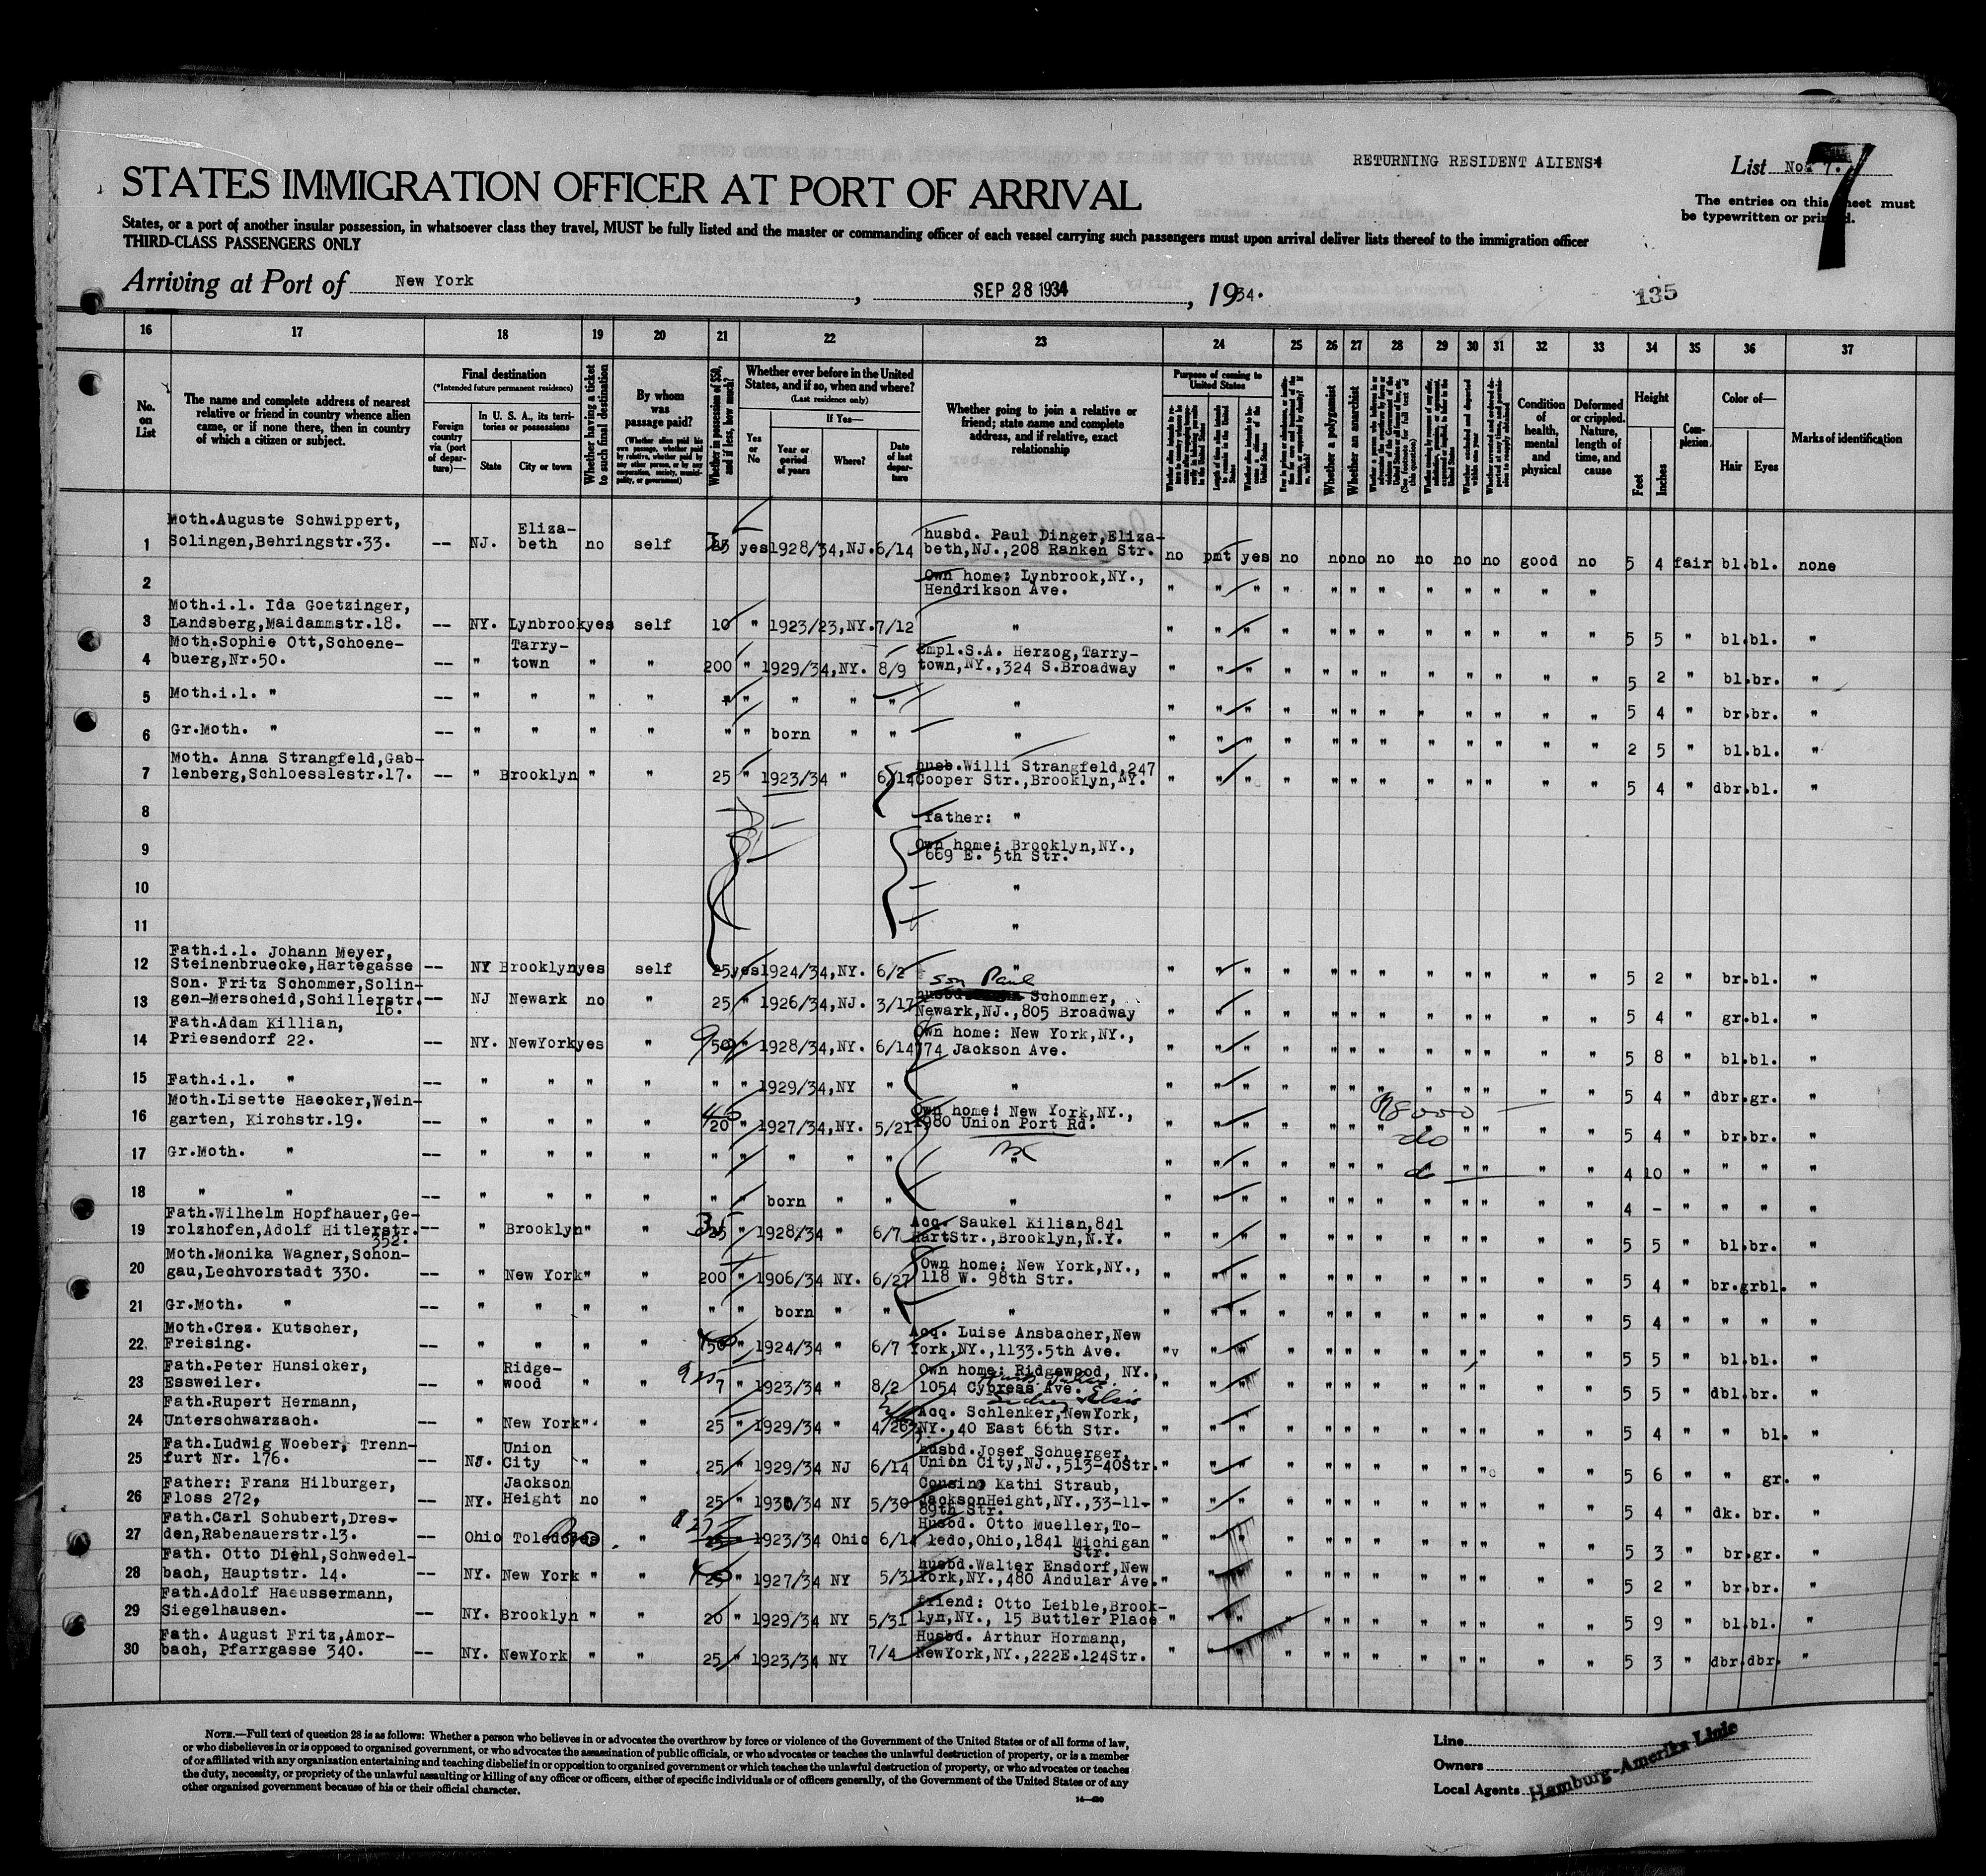 RETURNING RESIDENT ALIENS
List No. 7.
7
STATES IMMIGRATION OFFICER AT PORT OF ARRIVAL
The entries on this sheet must
be typewritten or printed.
States, or a port of another insular possession, in whatsoever class they travel, MUST be fully listed and the master or commanding officer of each vessel carrying such passengers must upon arrival deliver lists thereof to the immigration officer
THIRD-CLASS PASSENGERS ONLY
Arriving at Port of New York, SEP 28 1934, 1934.
135
16 17 18 19 20 21 22 23 24 25 26 27 28 29 30 31 32 33 34 35 36 37
No. on List
The name and complete address of nearest relative or friend in country whence alien came, or if none there, then in country of which a citizen or subject.
Final destination
(*Intended future permanent residence)
Foreign country via (port of departure)—
In U. S. A., its territories or possessions
State
City or town
Whether having a ticket to such final destination
By whom was passage paid?
(Whether alien paid his own passage, whether paid by relative, whether paid by any other person, or by any corporation, society, municipality, or government)
Whether in possession of $50, and if less, how much?
Whether ever before in the United States, and if so, when and where?
(Last residence only)
Yes or No
If Yes—
Year or period of years
Where?
Date of last departure
Whether going to join a relative or friend; state name and complete address, and if relative, exact relationship
Purpose of coming to United States
Length of time alien intends to remain in the United States
Whether a polygamist
Whether an anarchist
Condition of health, mental and physical
Deformed or crippled. Nature, length of time, and cause
Height
Feet
Inches
Complexion
Color of—
Hair
Eyes
Marks of identification
1 Moth.Auguste Schwippert, Solingen,Behringstr.33. -- NJ. Elizabeth no self 25 yes 1928/34,NJ. 6/14 husbd. Paul Dinger,Elizabeth,NJ.,208 Ranken Str. no pmt yes no no no no no no no good no 5 4 fair bl. bl. none
2 Own home: Lynbrook,NY., Hendrikson Ave. " " " " " " " " " " " "
3 Moth.i.l. Ida Goetzinger, Landsberg,Maidammstr.18. -- NY. Lynbrook yes self 10 " 1923/23,NY. 7/12 " " " " " " " " " " " " " 5 5 " bl. bl. "
4 Moth.Sophie Ott,Schoenebuerg,Nr.50. -- " Tarrytown " " 200 " 1929/34,NY. 8/9 Empl.S.A. Herzog,Tarrytown,NY.,324 S.Broadway " " " " " " " " " " " " 5 2 " bl. br. "
5 Moth.i.l. " -- " " " " " " " " " " " " " " " " " " " " " " 5 4 " br. br. "
6 Gr.Moth. " -- " " " " " " born " " " " " " " " " " " " " " " 2 5 " bl. bl. "
7 Moth. Anna Strangfeld,Gablenberg,Schloesslestr.17. -- " Brooklyn " " 25 " 1923/34 " 6/14 husb.Willi Strangfeld,247 Cooper Str.,Brooklyn,NY. " " " " " " " " " " " " 5 4 " dbr. bl. "
8 father: "
9 Own home: Brooklyn,NY., 669 E. 5th Str.
10 "
11 "
12 Fath.i.l. Johann Meyer, Steinenbruecke,Hartegasse -- NY Brooklyn yes self 25 yes 1924/34,NY. 6/2 " " " " " " " " " " " " " 5 2 " br. bl. "
13 Son. Fritz Schommer,Solingen-Merscheid,Schillerstr. 16. -- NJ Newark no " 25 " 1926/34,NJ. 3/17 son Paul husbd. Schommer, Newark,NJ.,805 Broadway " " " " " " " " " " " " 5 4 " gr. bl. "
14 Fath.Adam Killian, Priesendorf 22. -- NY. NewYork yes " 50 " 1928/34,NY. 6/14 Own home: New York,NY., 774 Jackson Ave. " " " " " " " " " " " " 5 8 " bl. bl. "
15 Fath.i.l. " -- " " " " " " 1929/34,NY " " " " " " " " " " " " " " 5 4 " dbr. gr. "
16 Moth.Lisette Haecker,Weingarten, Kirchstr.19. -- " " " " 20 " 1927/34,NY. 5/21 Own home: New York,NY., 1980 Union Port Rd. " " " " " " " " " " " " 5 4 " br. br. "
17 Gr.Moth. " -- " " " " " " " " " " " " " " " " do " " " " 4 10 " " " "
18 " " -- " " " " " " born " " " " " " " " " do " " " " 4 - " " " "
19 Fath.Wilhelm Hopfhauer,Gerolzhofen,Adolf Hitlerstr. 352. -- " Brooklyn " " 25 " 1928/34 " 6/7 Acq. Saukel Kilian,841 HartStr.,Brooklyn,N.Y. " " " " " " " " " " " " 5 5 " bl. br. "
20 Moth.Monika Wagner,Schongau,Lechvorstadt 330. -- " New York " " 200 " 1906/34 NY. 6/27 Own home: New York,NY., 118 W. 98th Str. " " " " " " " " " " " " 5 4 " br. grbl. "
21 Gr.Moth. " -- " " " " " " born " " " " " " " " " " " " " " " 5 4 " " " "
22. Moth.Cres. Kutscher, Freising. -- " " " " 50 " 1924/34 " 6/7 Acq. Luise Ansbacher,New York,NY.,1133.5th Ave. "v " " " " " " " " " " " 5 5 " bl. bl. "
23 Fath.Peter Hunsicker, Essweiler. -- " Ridgewood " " 7 " 1923/34 " 8/2 Own home: Ridgewood, NY., 1054 Cypress Ave. " " " " " " " " " " " " 5 5 " dbl. br. "
24 Fath.Rupert Hermann, Unterschwarzach. -- " New York " " 25 " 1929/34 " 4/26 Acq. Schlenker,NewYork, NY.,40 East 66th Str. " " " " " " " " " " " " 5 4 " " bl. "
25 Fath.Ludwig Woeber, Trennfurt Nr. 176. -- NJ. Union City " " 25 " 1929/34 NJ 6/14 husbd.Josef Schuerger, Union City,NJ.,513-40Str. " " " " " " " " " " " " 5 6 " " gr. "
26 Father: Franz Hilburger, Floss 272, -- NY. Jackson Height no " 25 " 1930/34 NY 5/30 Cousin: Kathi Straub, JacksonHeight,NY.,33-11-89th Str. " " " " " " " " " " " " 5 4 " dk. br. "
27 Fath.Carl Schubert,Dresden,Rabenauerstr.13. -- Ohio Toledo " " 1923/34 Ohio 6/14 Husbd. Otto Mueller,Toledo,Ohio,1841 Michigan Str. " " " " " " " " " " " " 5 3 " br. gr. "
28 Fath. Otto Diehl,Schwedelbach, Hauptstr. 14. -- NY. New York " " 25 " 1927/34 NY 5/31 husbd.Walter Ensdorf,New York,NY.,480 Andular Ave. " " " " " " " " " " " " 5 2 " br. br. "
29 Fath.Adolf Haeussermann, Siegelhausen. -- NY. Brooklyn " " 20 " 1929/34 NY 5/31 friend: Otto Leible,Brooklyn,NY., 15 Buttler Place " " " " " " " " " " " " 5 9 " bl. bl. "
30 Fath. August Fritz,Amorbach, Pfarrgasse 340. -- NY. NewYork " " 25 " 1923/34 NY 7/4 Husbd. Arthur Hormann, NewYork,NY.,222E.124Str. " " " " " " " " " " " " 5 3 " dbr. dbr. "
NOTE.—Full text of question 28 is as follows: Whether a person who believes in or advocates the overthrow by force or violence of the Government of the United States or of all forms of law,
or who disbelieves in or is opposed to organized government, or who advocates the assassination of public officials, or who advocates or teaches the unlawful destruction of property, or is a member
of or affiliated with any organization entertaining and teaching disbelief in or opposition to organized government or which teaches the unlawful destruction of property, or who advocates or teaches
the duty, necessity, or propriety of the unlawful assaulting or killing of any officer or officers, either of specific individuals or of officers generally, of the Government of the United States or of any
other organized government because of his or their official character.
Line
Owners
Local Agents
Hamburg-Amerika Linie